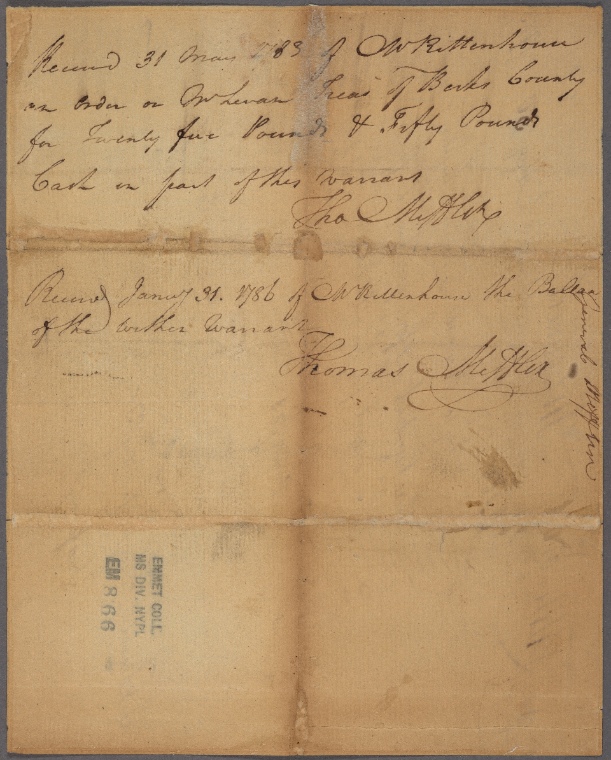 Received 31 May 1785 of Mr Rittenhouse
an order on Treas of Berks County
for Twenty five Pounds & Fifty Pounds
Cash in part of this warrant
Tho
Received Jany 31. 1786 of Mr Rittenhouse the
of the within Warrant
Thomas
General Mifflin
EMMET COLL.
MS DIV. NYPL
EM 866